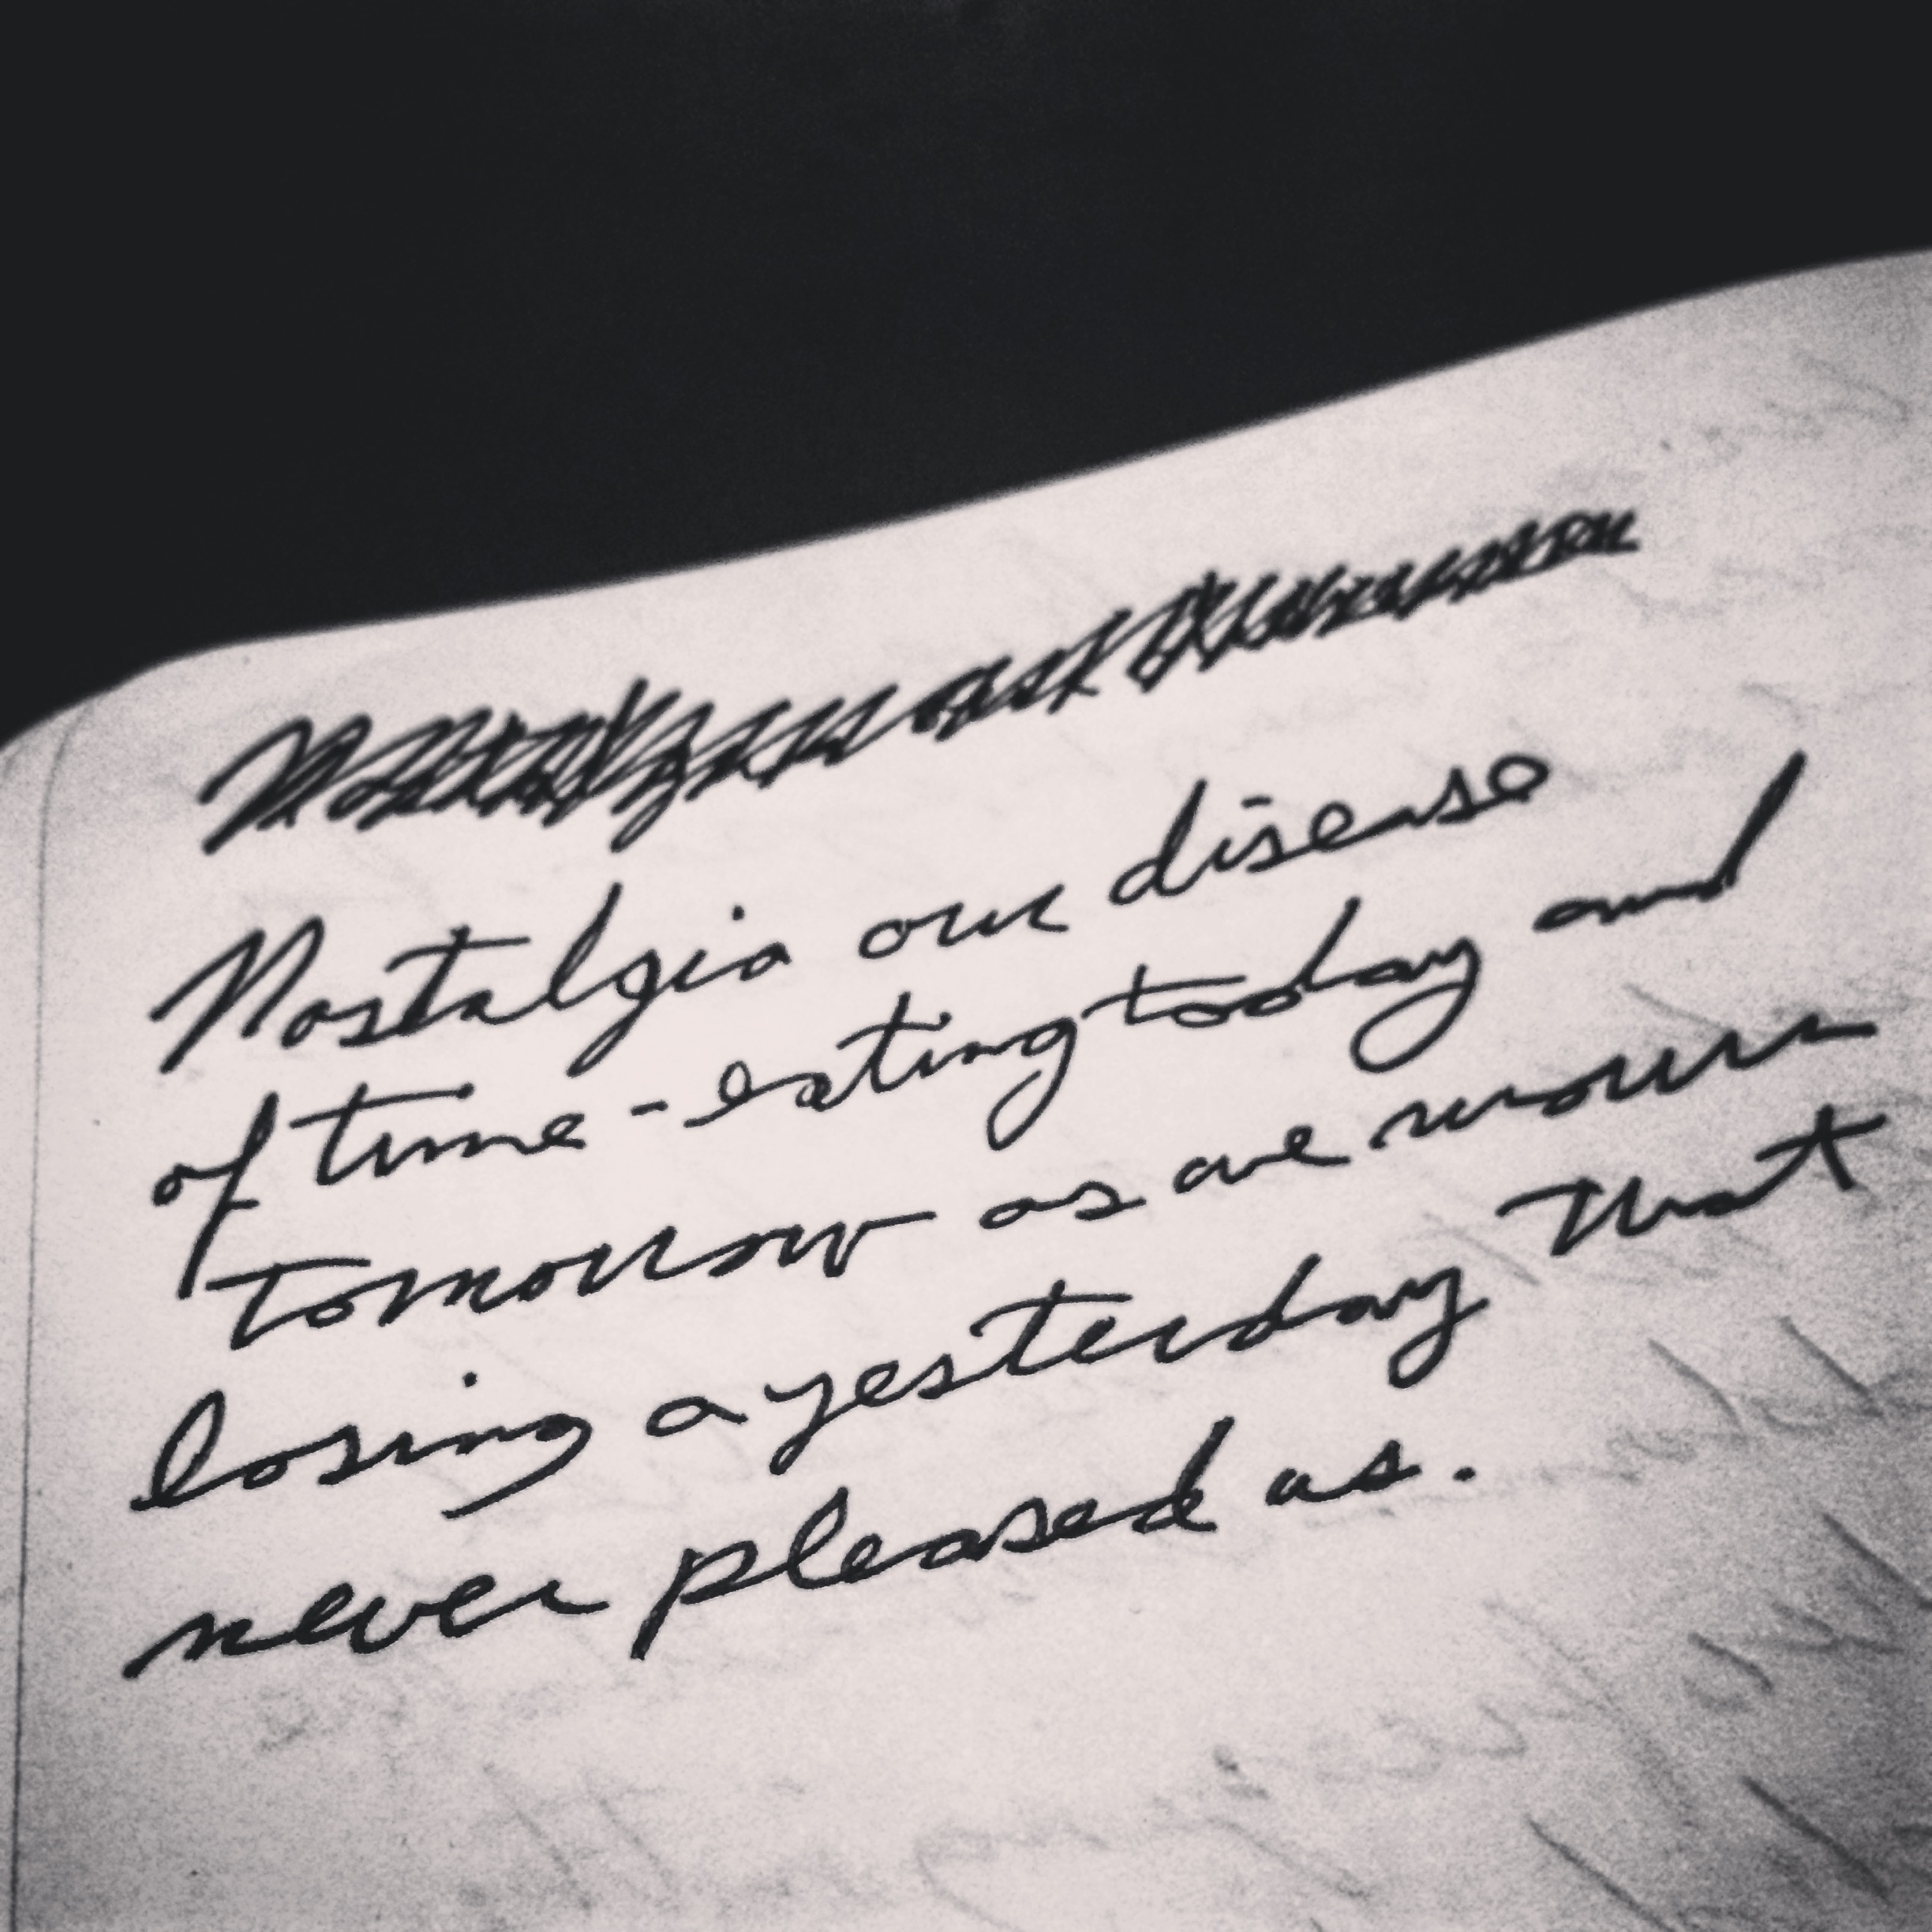 Nostalgia our disease
of time-eating today and
tomorrow as we mourn
losing a yesterday that
never pleased us.